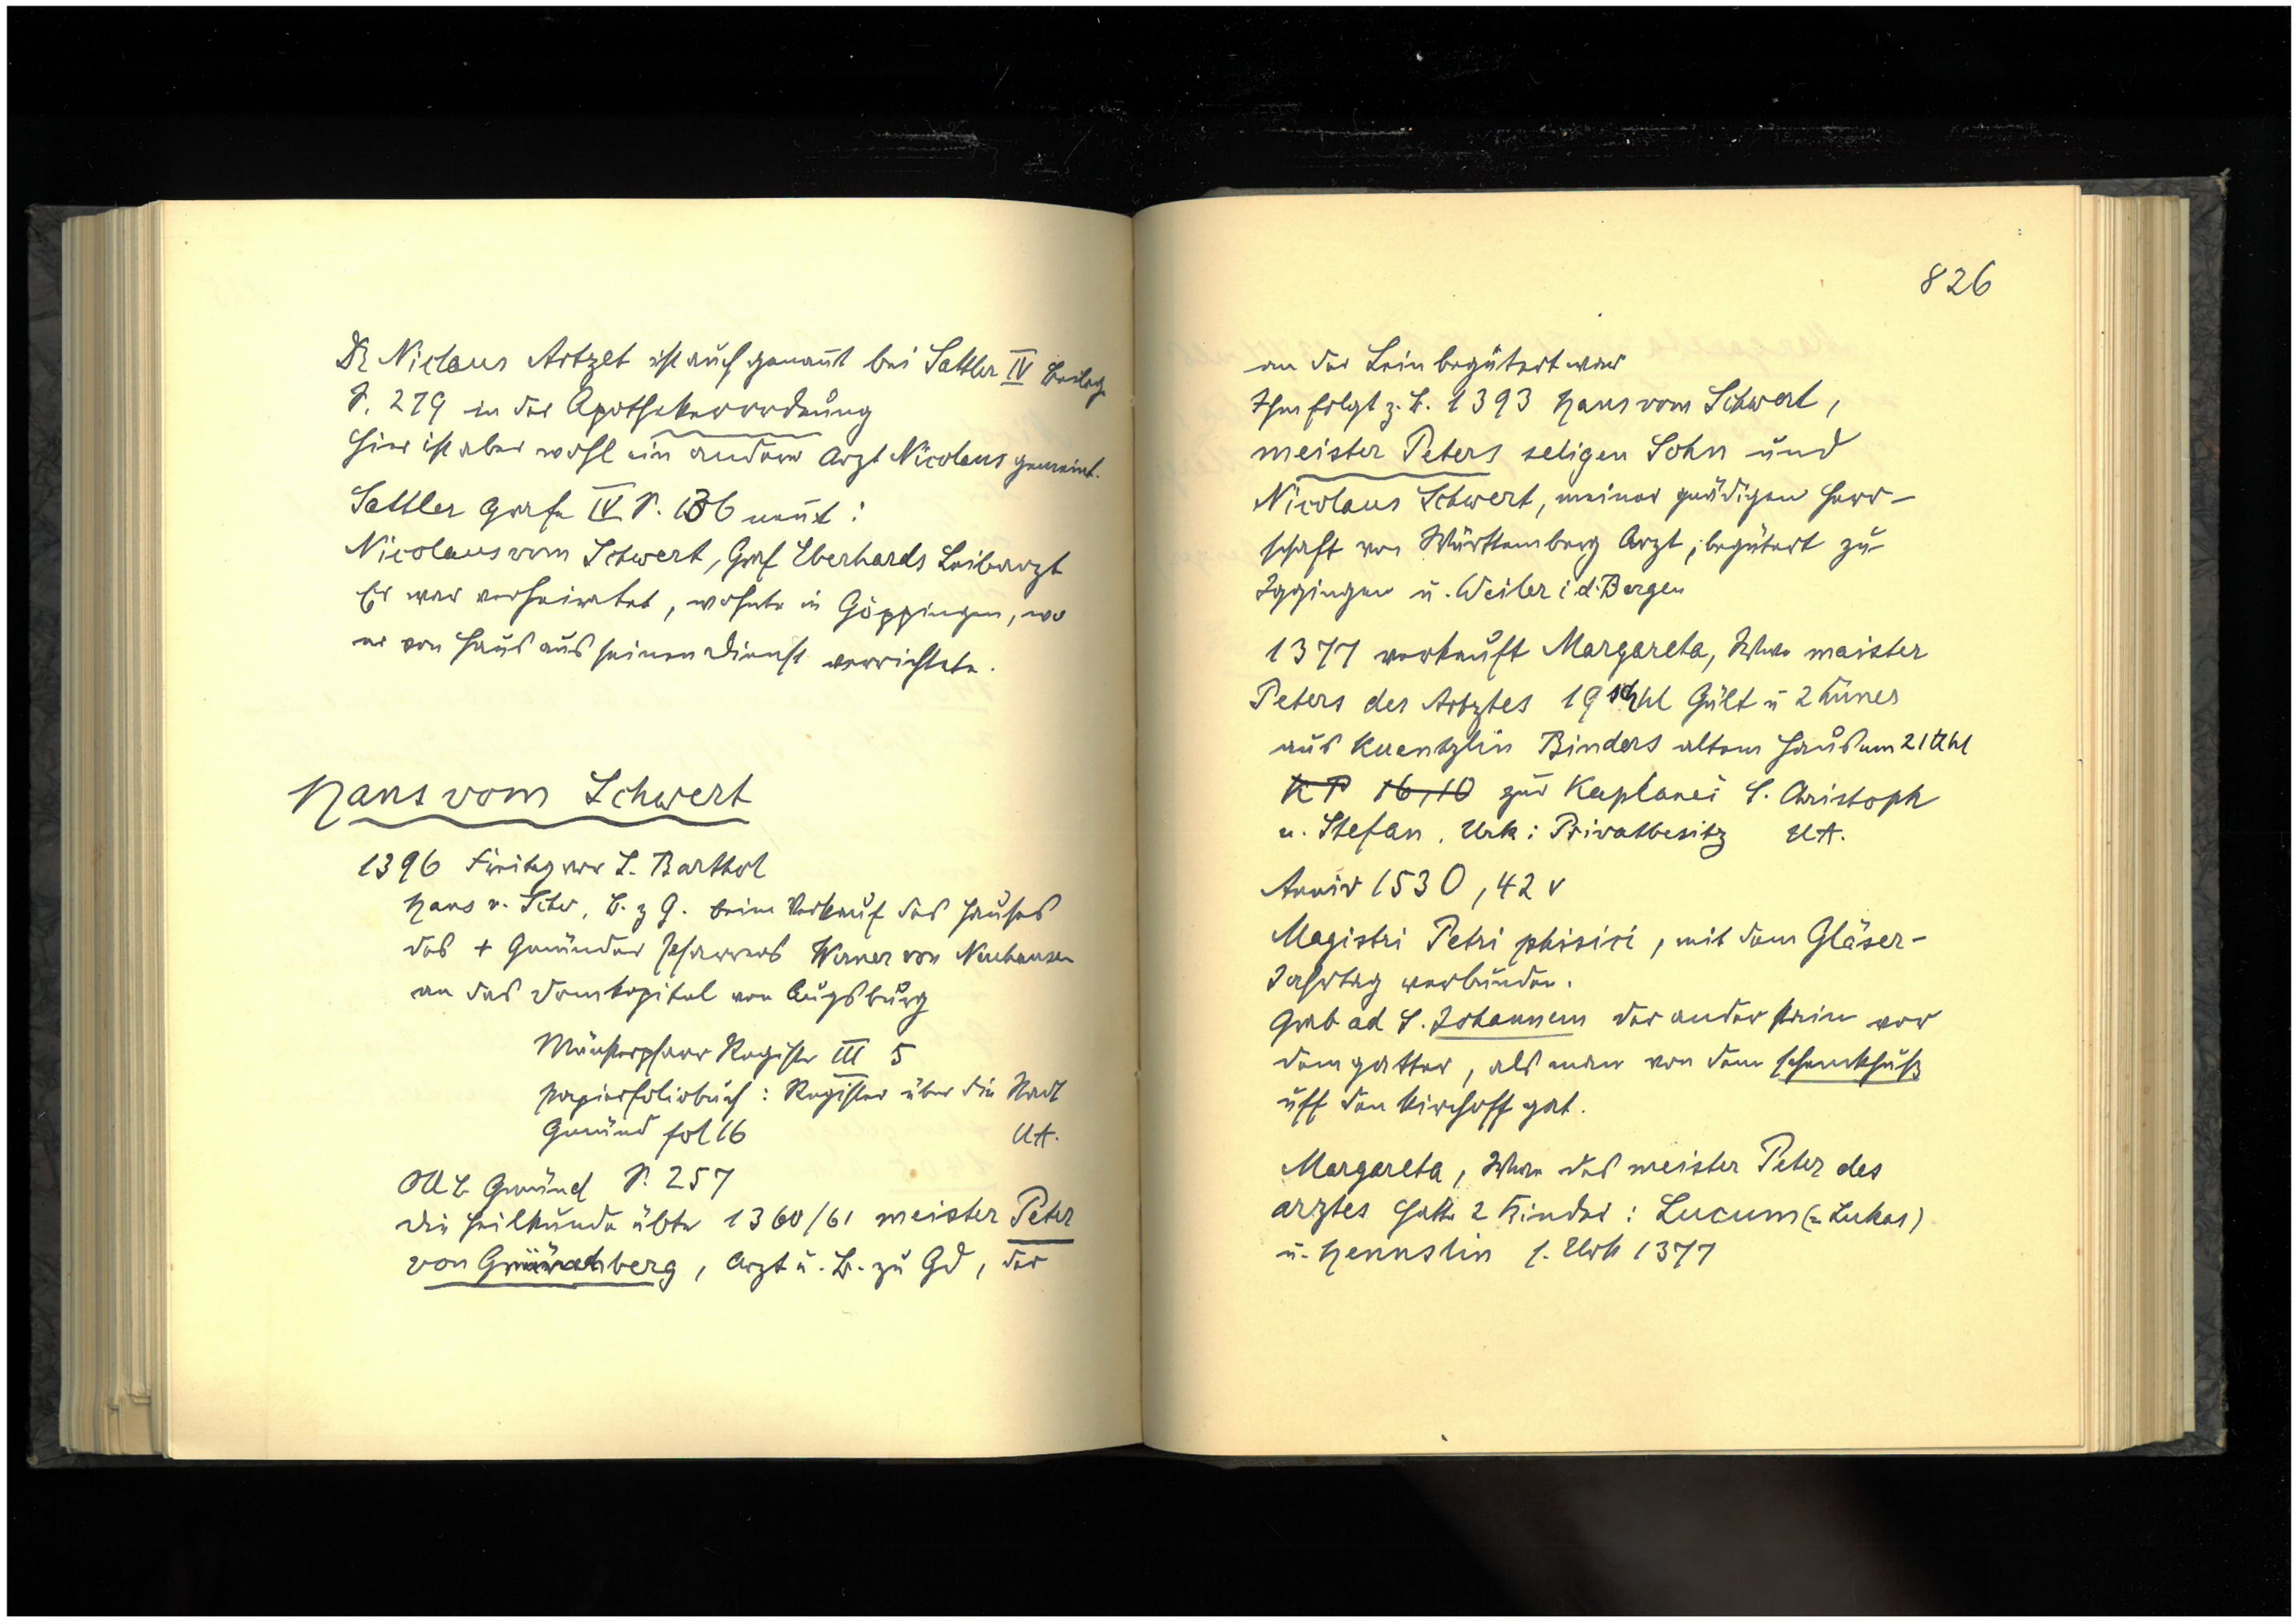 Dr Niclaus Artzet ist auch genannt bei Sattler IV Beilag
S. 279 in der Apothekerordnung
Hier ist aber wohl ein anderer Arzt Nicolaus gemeint.
Sattler Grafe IV S. 136 nennt:
Nicolaus vom Schwert, Graf Eberhards Leibarzt
Er war verheiratet, wohnte in Göppingen, wo
er von Haus aus seinen Dienst verrichtete.
Hans vom Schwert
1396 Freitag vor S. Barthol
Hans v. Schw, B. z G. beim Verkauf des Hauses
des + Gmünder Pfarrers Werner von Neuhausen
an das Domkapitel von Augsburg
Münsterpfarr Register III 5
Papierfoliobuch: Register über die Stadt
Gmünd fol 16 UA.
OAB Gmünd S. 257
Die Heilkunde übte 1360/61 meister Peter
von , Arzt u. B. zu Gd, der
826
an der Lein begütert war
Ihm folgt z. B. 1393 Hans vom Schwert,
meister Peters seligen Sohn und
Nicolaus Schwert, meiner gnädigen Herr-
schaft von Württemberg Arzt, begütert zu
Iggingen u. Weiler i d. Bergen
1377 verkauft Margareta, Wwe maister
Peters des Artztes 19 schhl Gült u 2 hüner
aus Kuentzlin Binders altem Haus um 21 lb hl
KP 16,10 zur Kaplanei S. Christoph
u. Stefan. Urk: Privatbesitz UA.
Anniv 1530, 42 v
Magistri Petri phisici, mit dem Gläser-
Jahrtag verbunden.
Grab ad S. Johannem der ander stein vor
dem gatter, als man von dem schmukhuß
uff den kirchoff gat.
Margareta, Wwe des meister Peter des
arztes hatte 2 Kinder: Lucum (= Lukas)
u. Hennslin s. Urk 1377